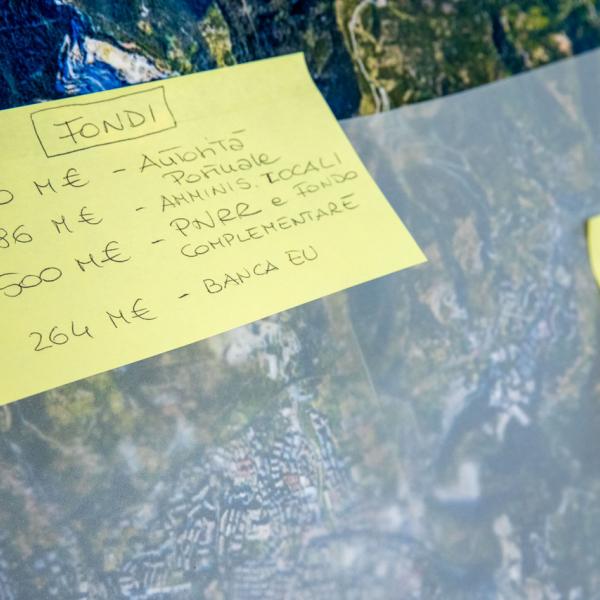 FONDI
0 M€ - Autorità
Portuale
86 M€ - AMMINIS. LOCALI
500 M€ - PNRR e FONDO
COMPLEMENTARE
264 M€ - BANCA EU